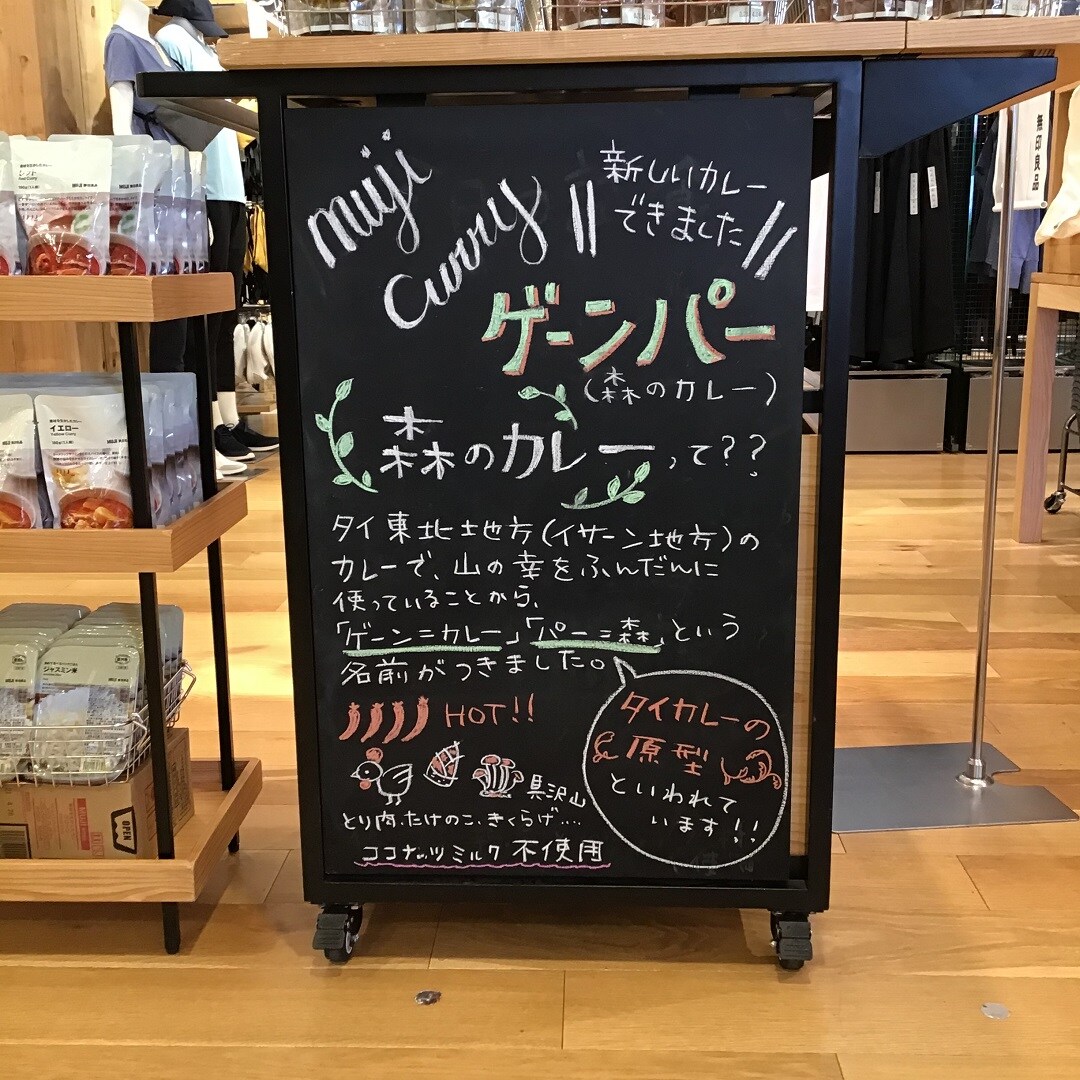 muji
Curry
新しいカレー
できました
ゲーンパー
(森のカレー)
森のカレーって??
タイ東北地方(イサーン地方)の
カレーで、山の幸をふんだんに
使っていることから、
「ゲーン=カレー」「パー=森」という
名前がつきました。
HOT!!
具沢山
とり肉、たけのこ、きくらげ....
ココナッツミルク不使用
タイカレーの
原型
といわれて
います!!
無印良品
レッド
Red Curry
イエロー
Yellow Curry
ジャスミン米
OPEN